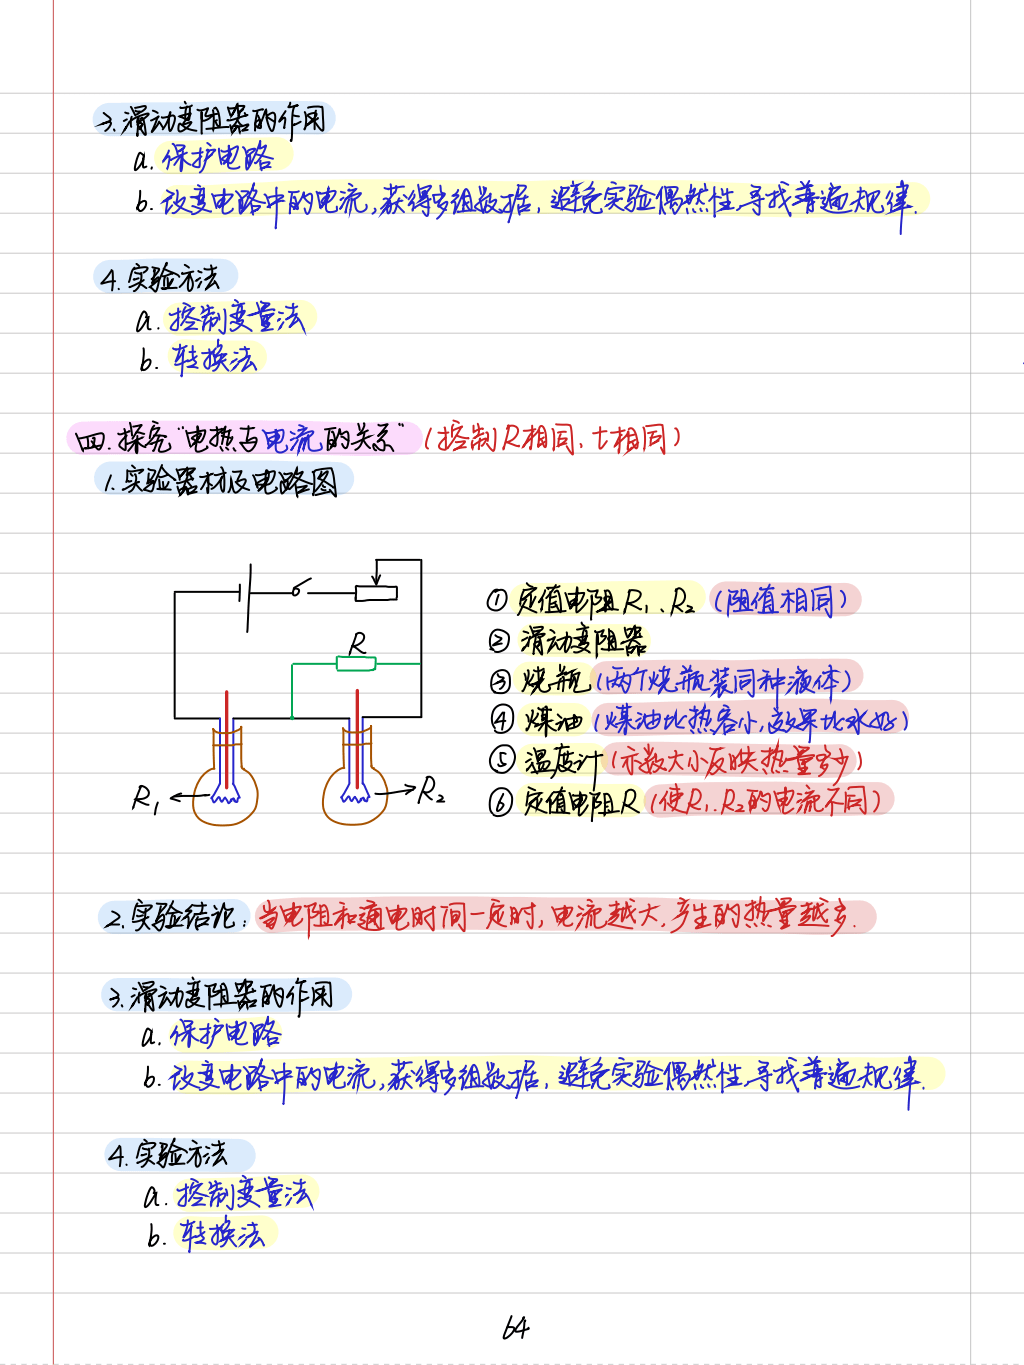 3.滑动变阻器的作用
a.保护电路
b.改变电路中的电流,获得多组数据,避免实验偶然性,寻找普遍规律.
4.实验方法
a.控制变量法
b.转换法
四.探究"电热与电流的关系"(控制R相同、t相同)
1.实验器材及电路图
R
R₁
R₂
①定值电阻R₁、R₂(阻值相同)
②滑动变阻器
③烧瓶(两个烧瓶装同种液体)
④煤油(煤油比热容小,效果比水好)
⑤温度计(示数大小反映热量多少)
⑥定值电阻R(使R₁、R₂的电流不同)
2.实验结论:当电阻和通电时间一定时,电流越大,产生的热量越多.
3.滑动变阻器的作用
a.保护电路
b.改变电路中的电流,获得多组数据,避免实验偶然性,寻找普遍规律.
4.实验方法
a.控制变量法
b.转换法
64